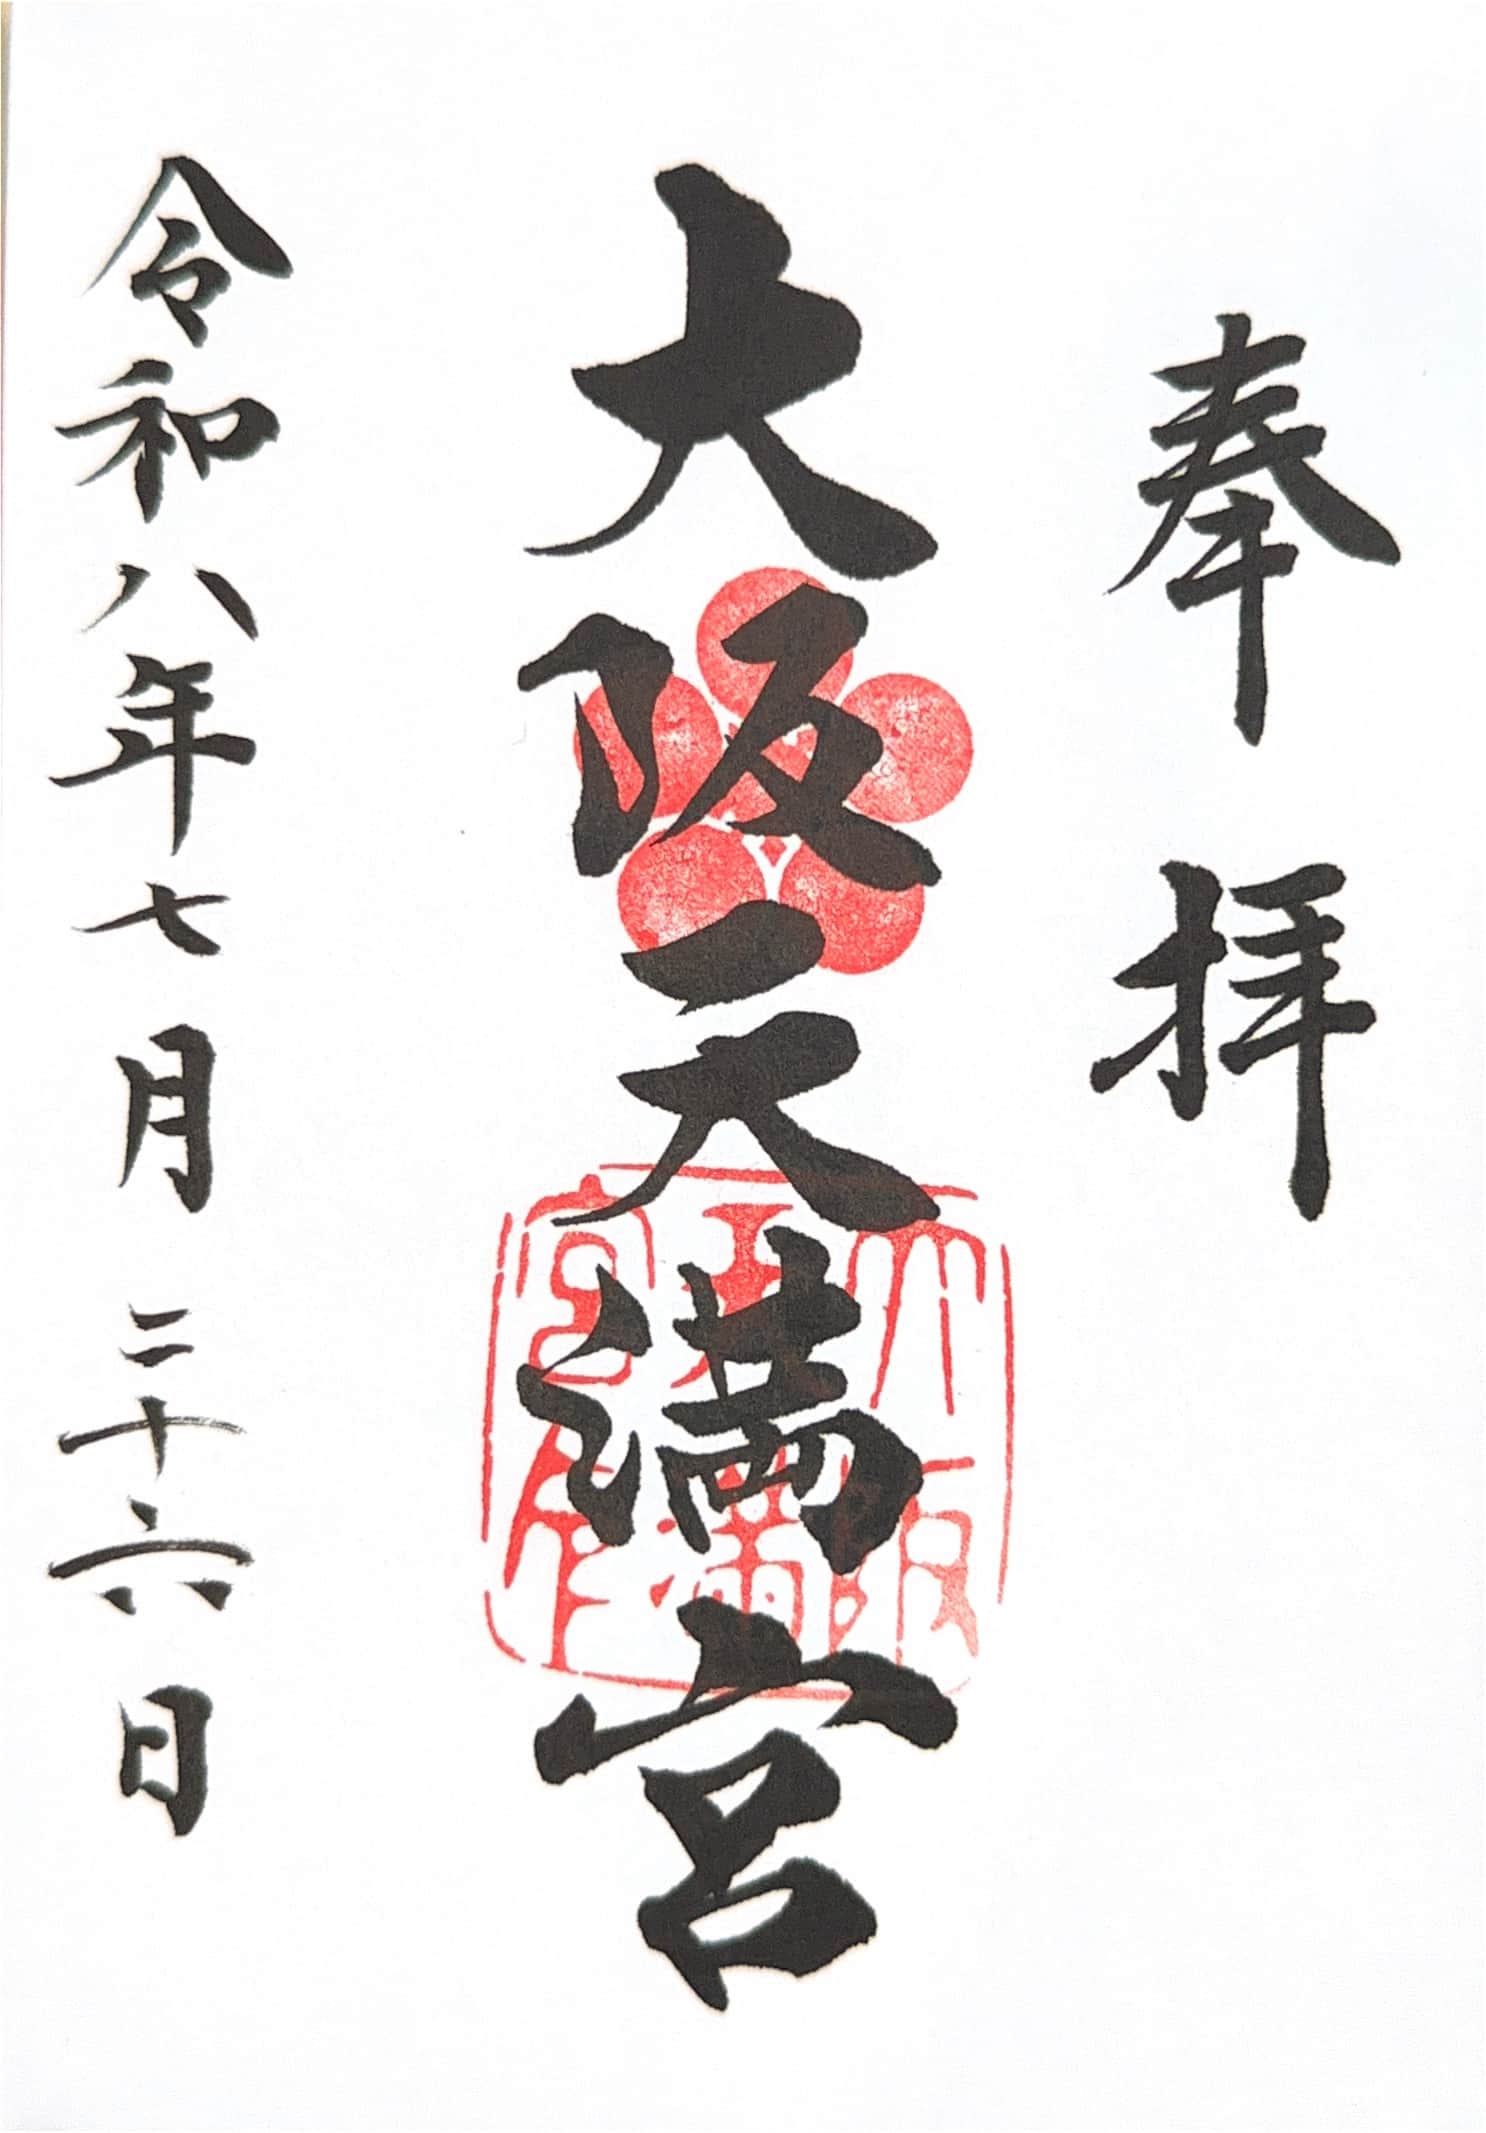 奉拝
大阪天満宮
令和八年七月二十六日